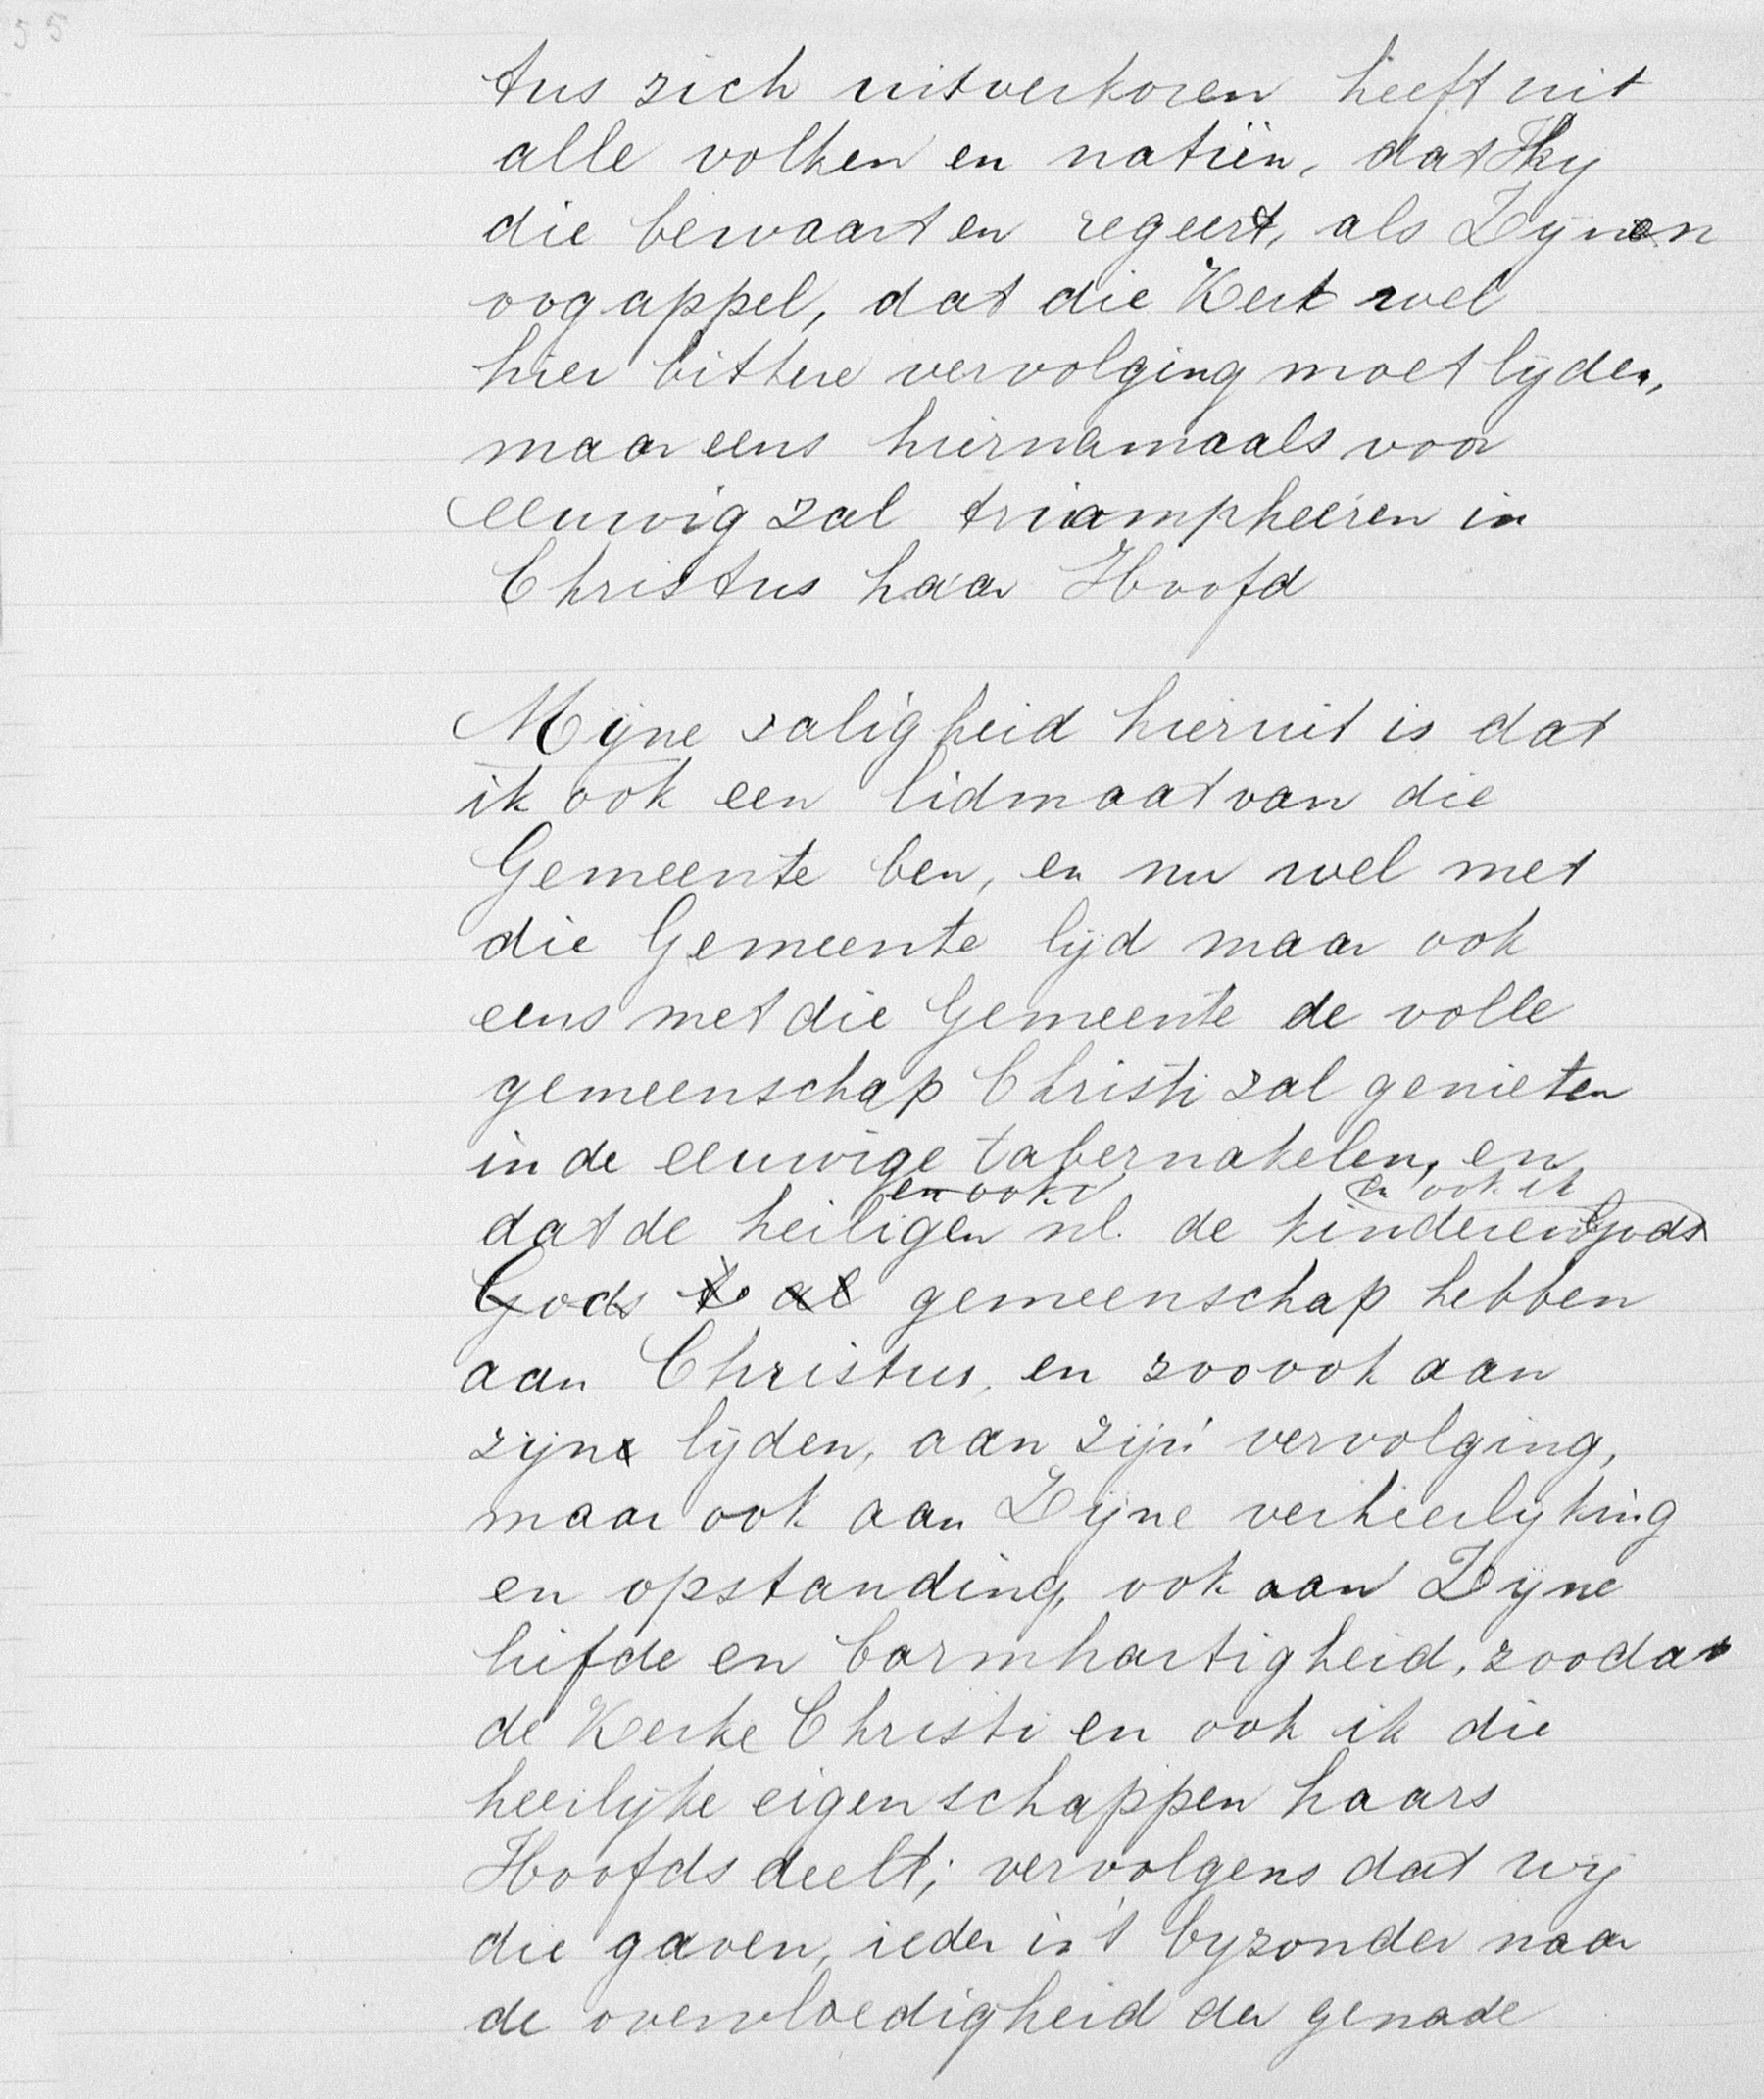 55
tus zich uitverkoren heeft uit
alle volken en natiën, dat Hy
die bewaart en regeert, als Zijnen
oogappel, dat die Kerk wel
hier bittere vervolging moet lyden,
maar eens hiernamaals voor
eeuwig zal triompheeren in
Christus haar Hoofd
Mijne zaligheid hieruit is dat
ik ook een lidmaat van die
Gemeente ben, en nu wel met
die Gemeente lijd maar ook
eens met die Gemeente de volle
gemeenschap Christi zal genieten
in de eeuwige tabernakelen, en
en ook en ook ik
dat de heiligen nl. de kinderen Gods
Gods gemeenschap hebben
aan Christus, en zooook aan
zijne lijden, aan zijn vervolging,
maar ook aan Zijne verheerlyking
en opstanding, ook aan Zijne
liefde en barmhartigheid, zoodat
de Kerke Christi en ook ik die
heerlijke eigenschappen haars
Hoofds deelt; vervolgens dat wij
die gaven, ieder in 't byzonder naar
de overvloedigheid der genade